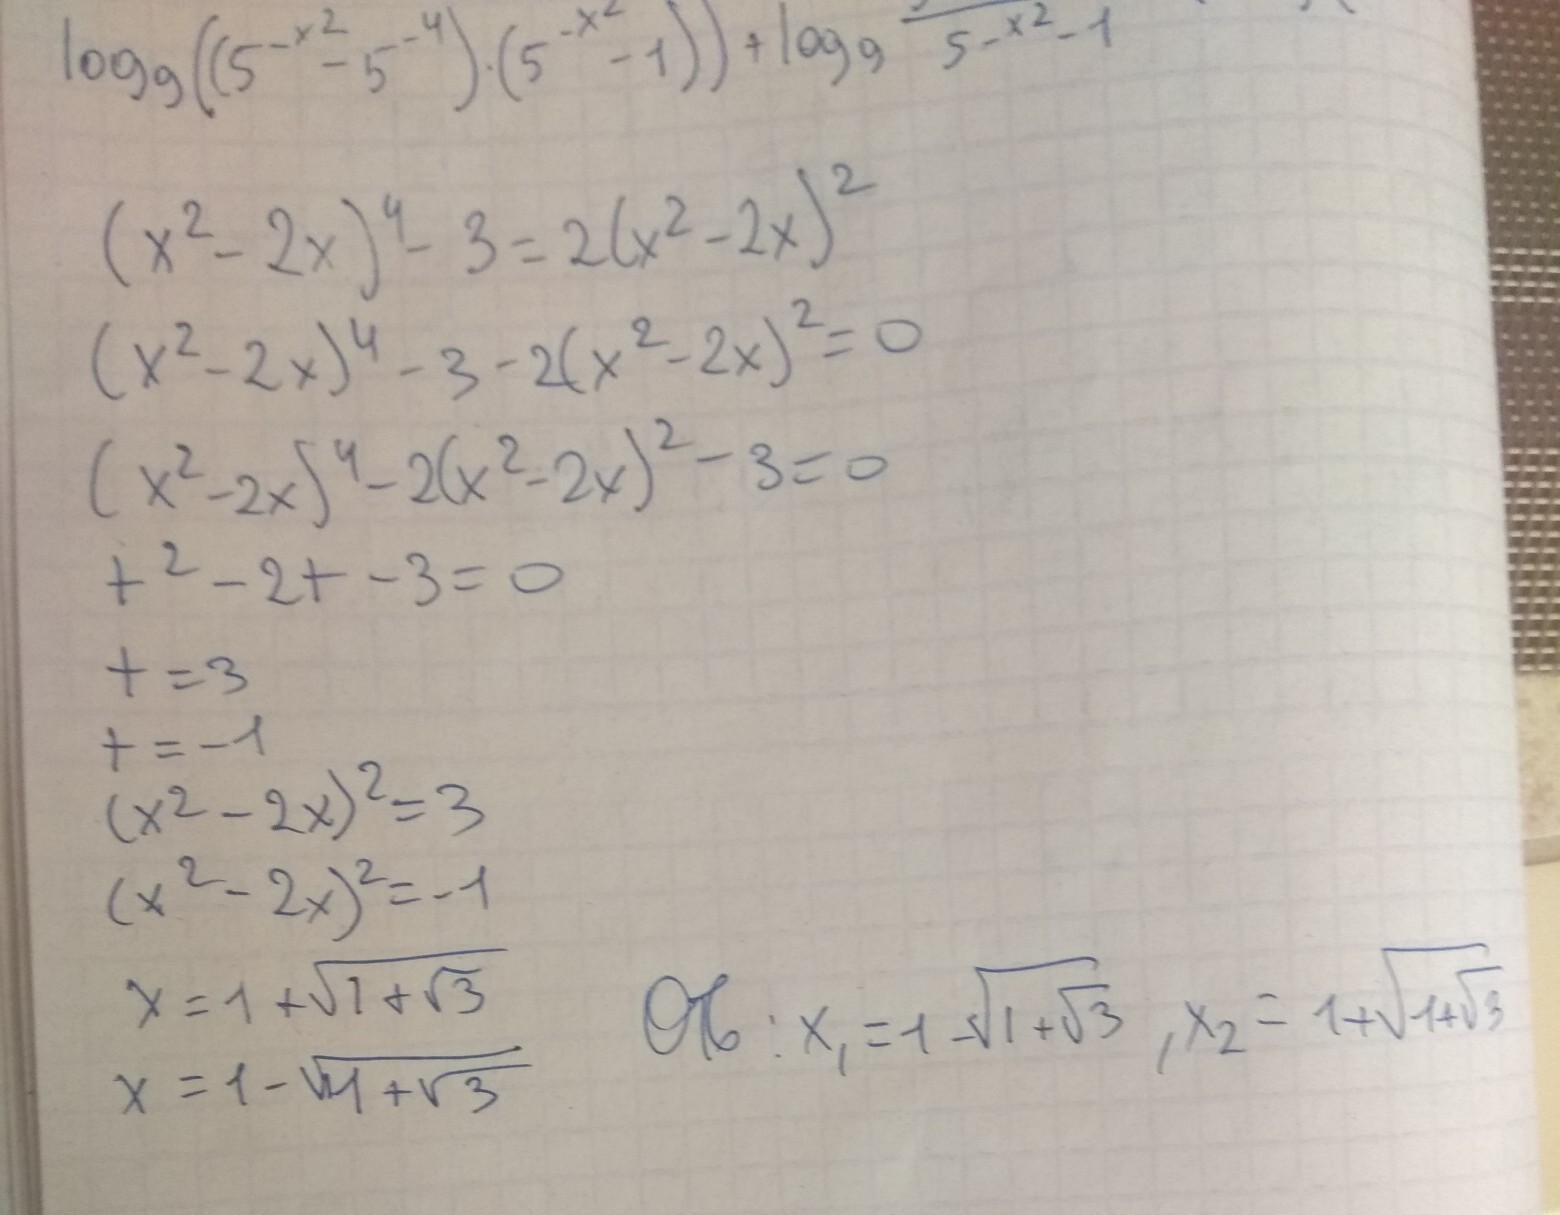 log₉((5^-x² - 5^-4)·(5^-x² - 1)) + log₉ 5^-x² - 1
(x² - 2x)⁴ - 3 = 2(x² - 2x)²
(x² - 2x)⁴ - 3 - 2(x² - 2x)² = 0
(x² - 2x)⁴ - 2(x² - 2x)² - 3 = 0
t² - 2t - 3 = 0
t = 3
t = -1
(x² - 2x)² = 3
(x² - 2x)² = -1
x = 1 + √(1 + √3)
x = 1 - √(1 + √3) Об: x₁ = 1 - √(1 + √3), x₂ = 1 + √(1 + √3)